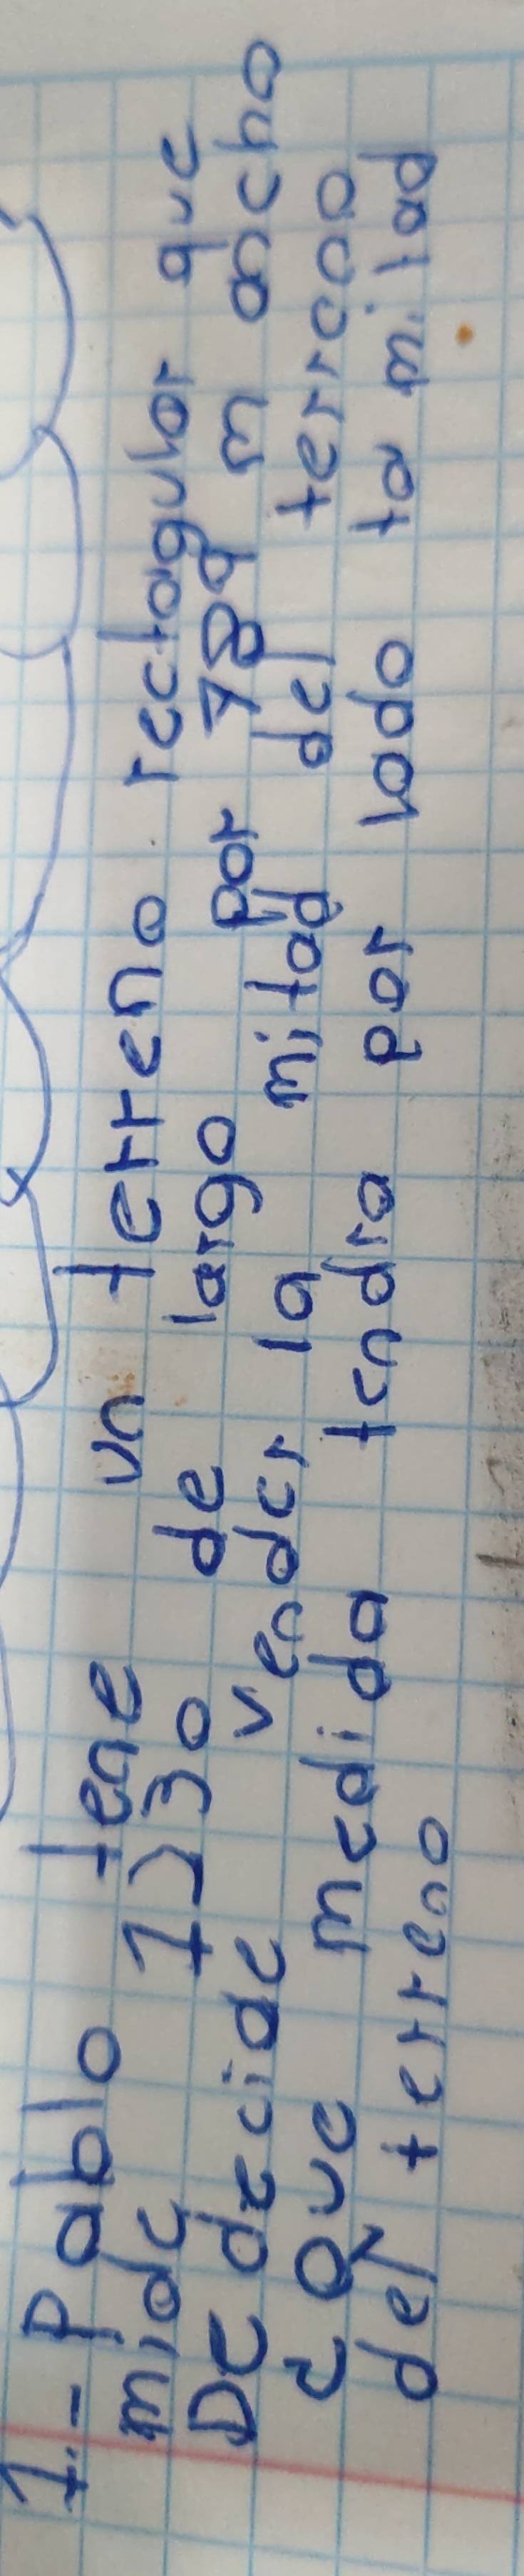 1.- Pablo tene un terreno rectagular que
mide 1230 de largo por 789 m ancho
De decide vender la mitad del terreoo
¿ Que medida tendra por lado ta mitad
del terreno